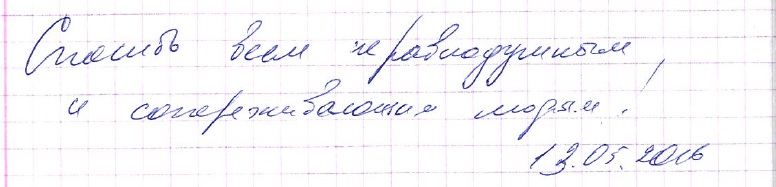 Спасибо всем неравнодушным,
и сопереживающим людям!
13.05.2016